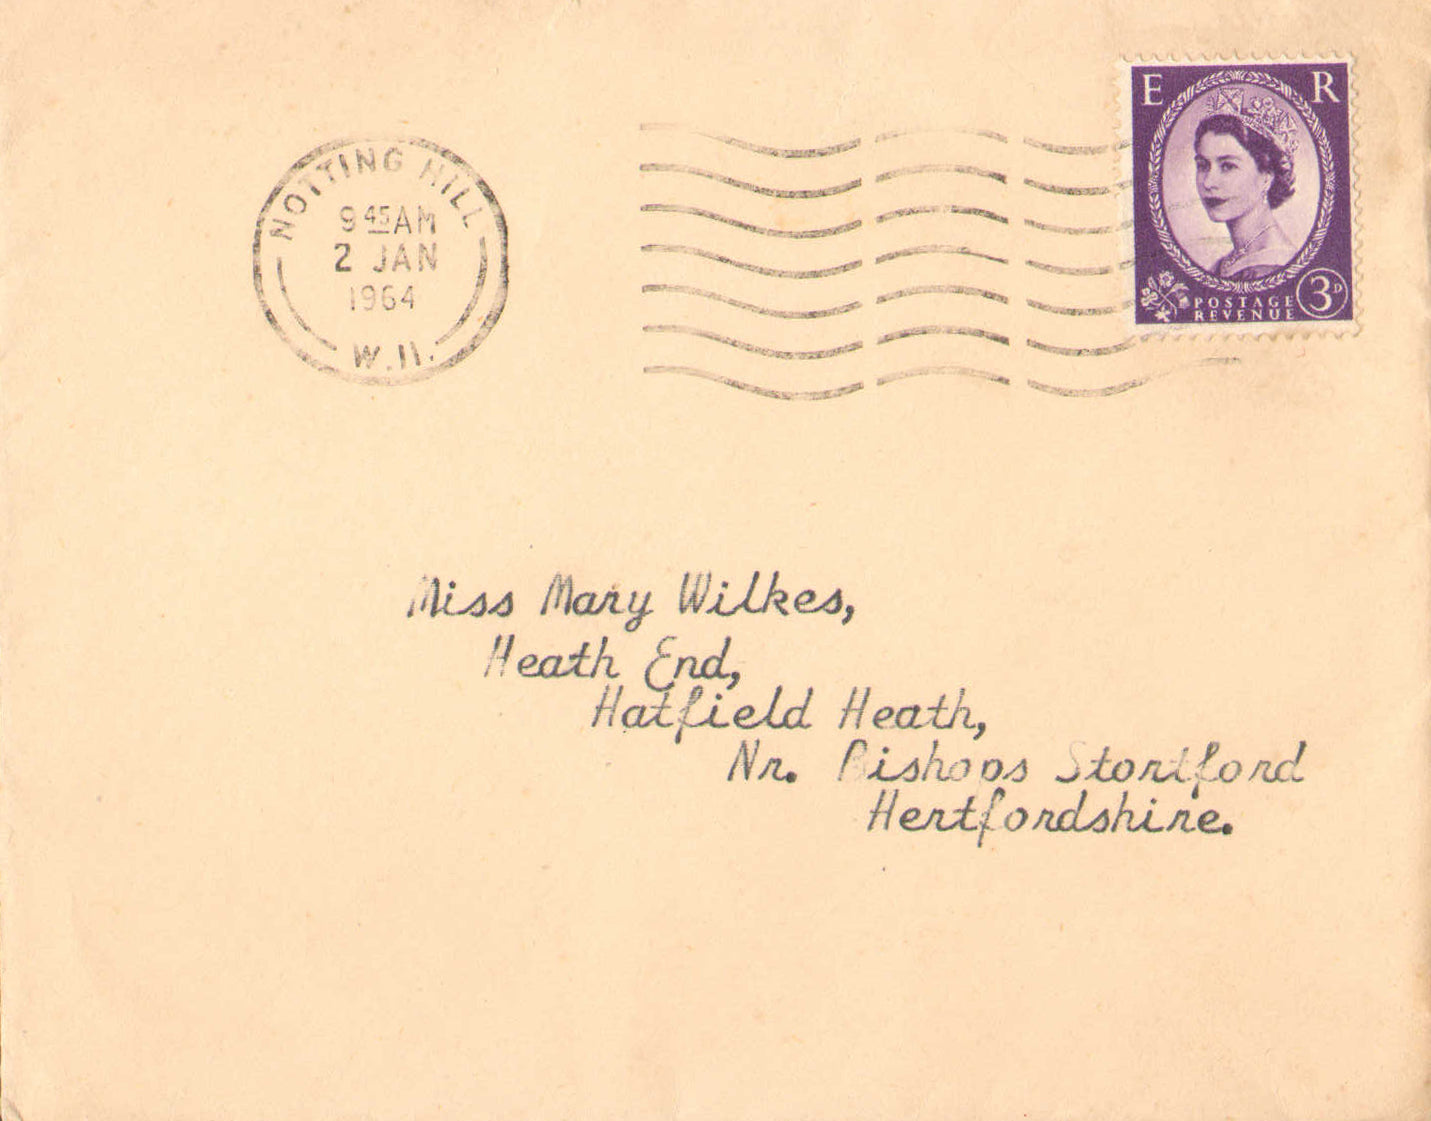 E R
NOTTING HILL
9 45 AM
2 JAN
1964
W.11.
POSTAGE
REVENUE
3D
Miss Mary Wilkes,
Heath End,
Hatfield Heath,
Nr. Bishops Stortford
Hertfordshire.